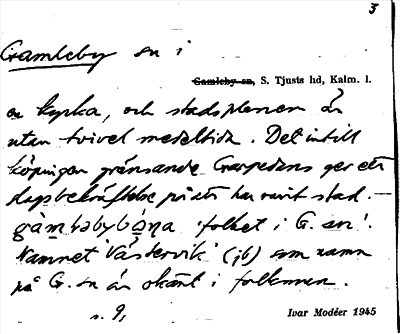 3
Gamleby sn i
Gamleby sn, S. Tjusts hd, Kalm. l.
en kyrka, och stadsplanen är
utan tvivel medeltida. Det intill
köpingen gränsande Garpedans ger ett
slags bekräftelse på att här varit stad.
'folket i G. sn'.
Namnet 'Västervik' (jb) som namn
på G. sn är okänt i folkmun.
s. 9,
Ivar Modéer 1945